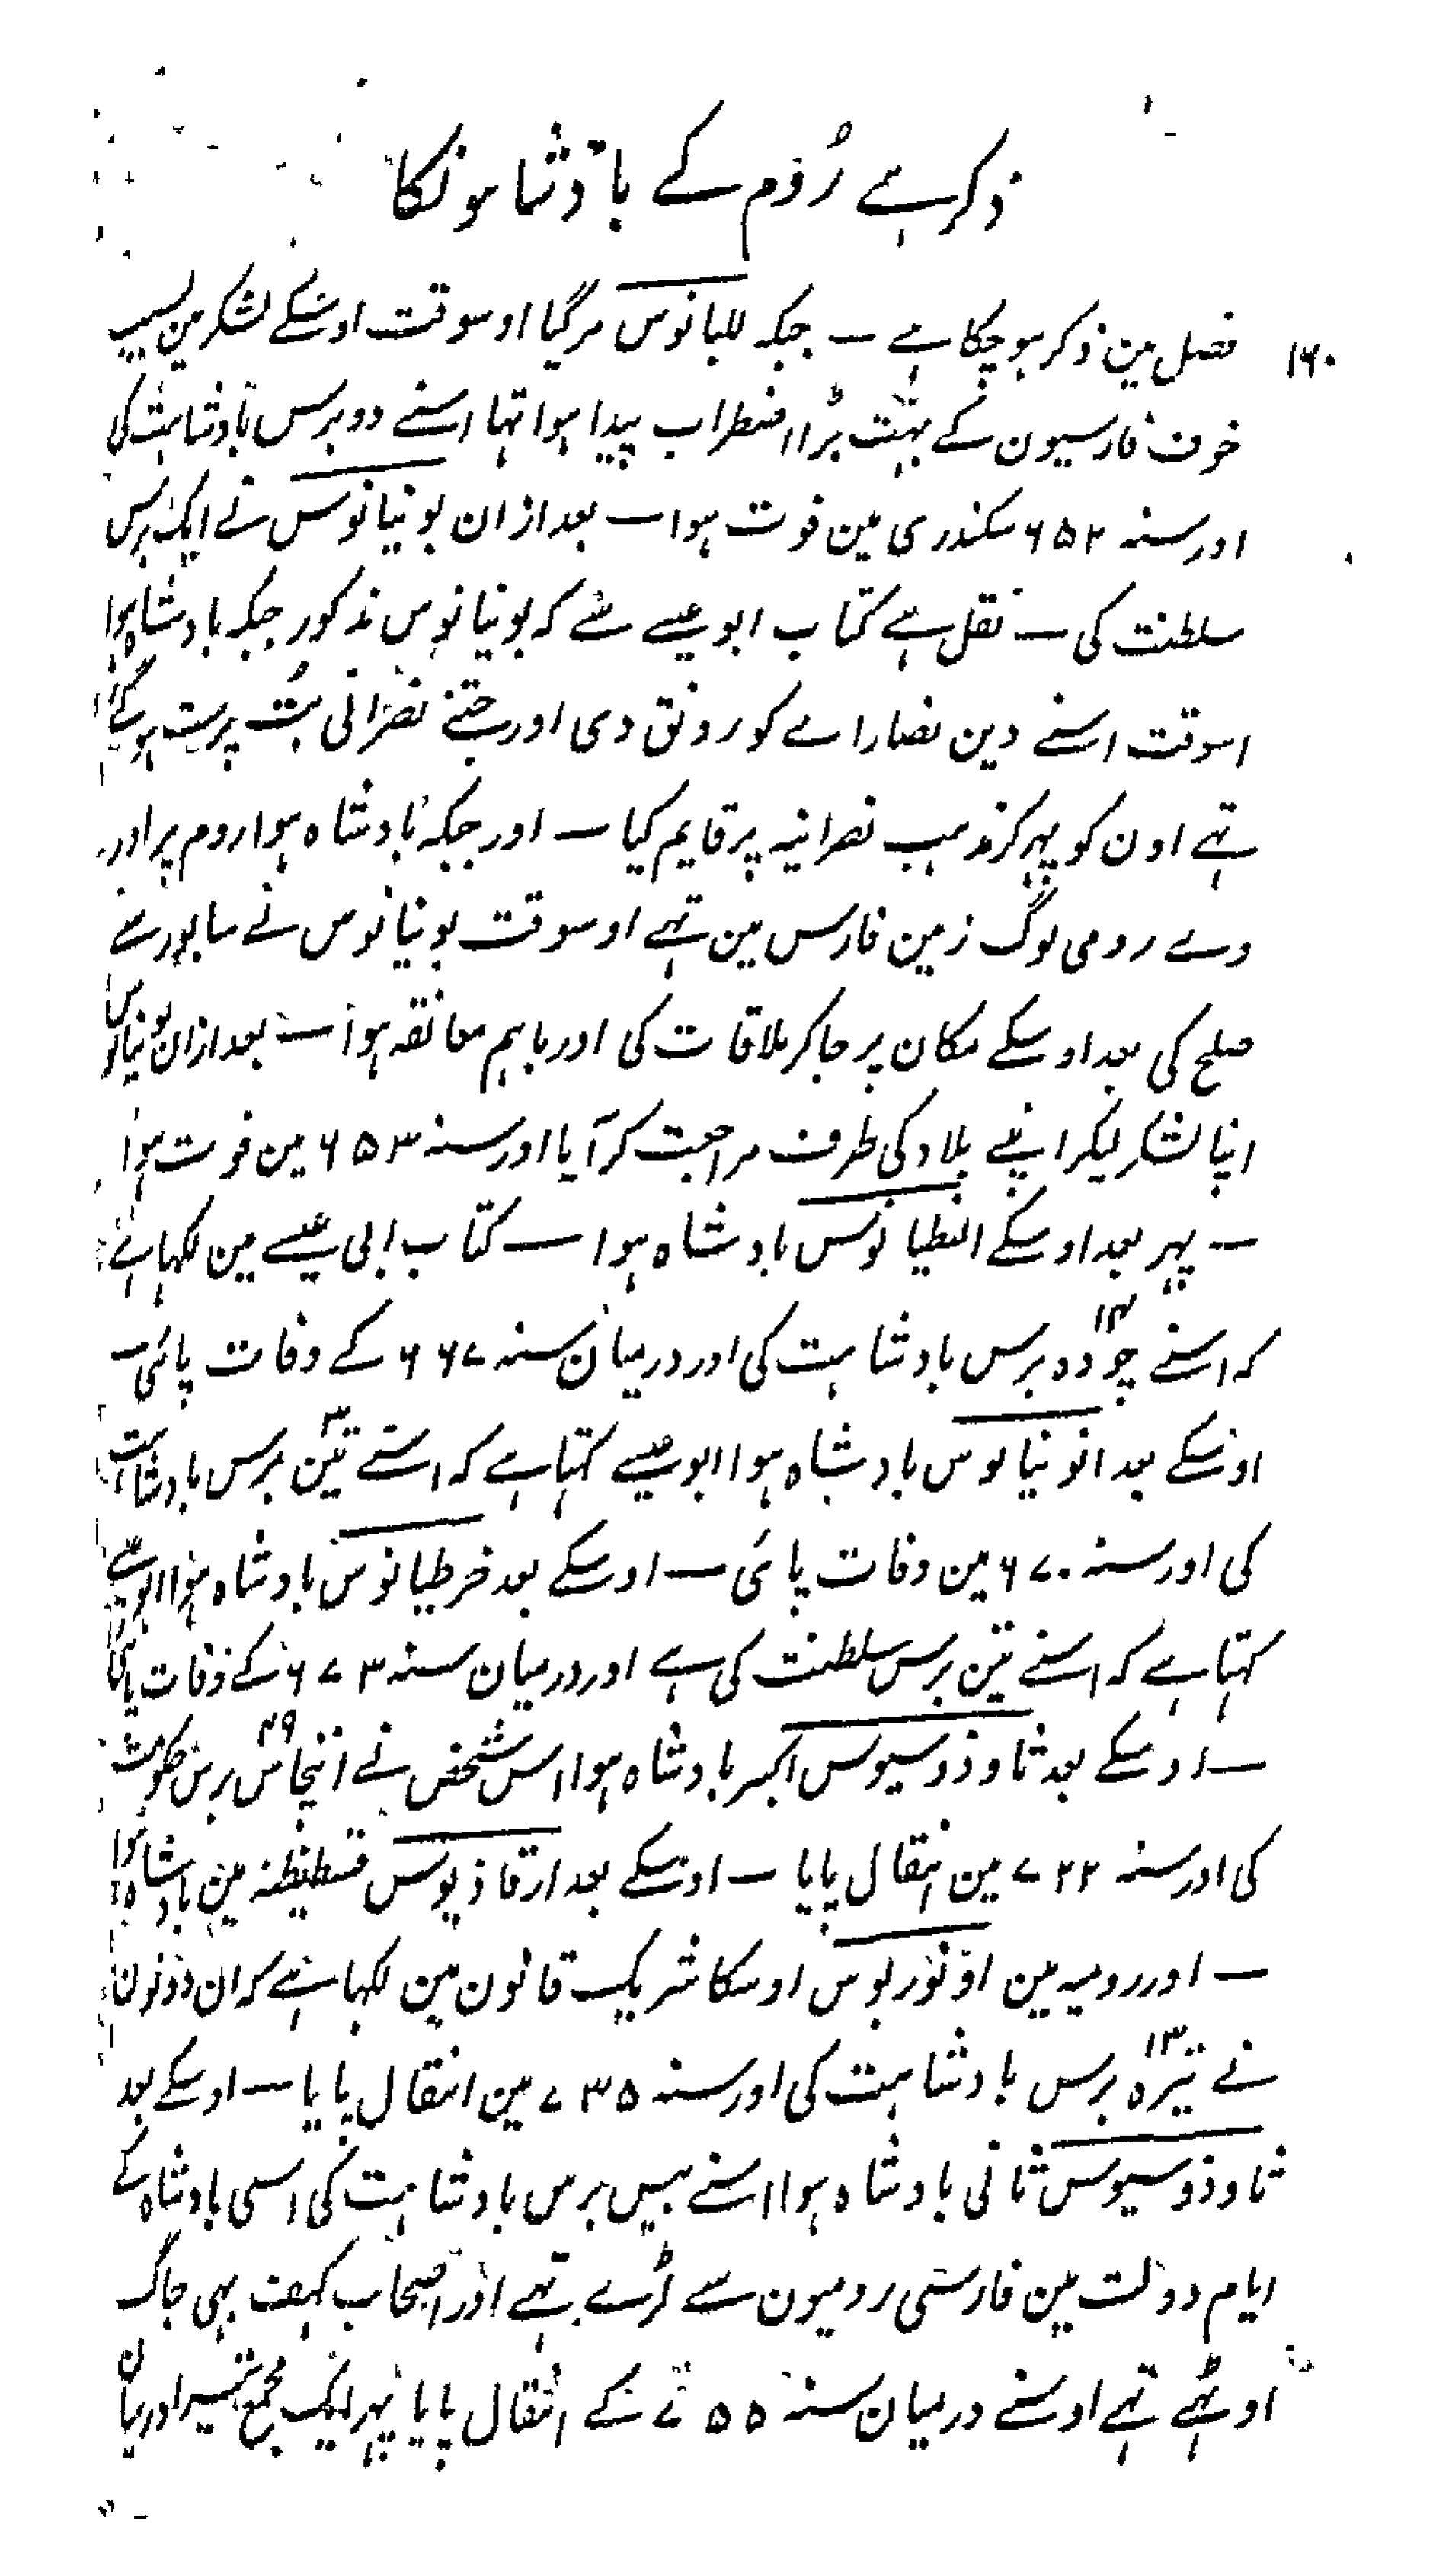 ذکر ہے رُوم کے بادشاہونکا
۱۶۰
فصل مین ذکر ہوچکا ہے — جبکہ للبانوس مرگیا اوسوقت اوسکے لشکر مین بسبب
خوف فارسیون کے بہت بڑا اضطراب پیدا ہوا تہا اسنے دو برس بادشاہت کی
اور سنہ ۶۵۲ سکندری مین فوت ہوا — بعد ازان یونیانوس نے ایک برس
سلطنت کی — نقل ہے کتاب ابو عیسے سے کہ یونیانوس مذکور جبکہ بادشاہ ہوا
اسوقت اسنے دین نصارا ے کو رونق دی اور جتنے نصرانی بُت پرست ہوگئے
تہے اون کو پہر کر مذہب نصرانیہ پر قایم کیا — اور جبکہ بادشاہ ہوا روم پر اور
وے رومی لوگ زمین فارس مین تہے اوسوقت یونیانوس نے سابور سے
صلح کی بعد اوسکے مکان پر جاکر ملاقات کی اور باہم معانقہ ہوا — بعد ازان یونیانوس
اپنا لشکر لیکر اپنے بلاد کی طرف مراجعت کر آیا اور سنہ ۶۵۳ مین فوت ہوا
— پہر بعد اوسکے النطیانوس بادشاہ ہوا — کتاب ابی عیسے مین لکہا ہے
کہ اسنے چودہ ۱۴ برس بادشاہت کی اور درمیان سنہ ۶۶۷ کے وفات پائی —
اوسکے بعد انونیانوس بادشاہ ہوا ابو عیسے کہتا ہے کہ اسنے تین ۳ برس بادشاہت
کی اور سنہ ۶۷۰ مین وفات پائی — اوسکے بعد خرطیانوس بادشاہ ہوا ابو عیسے
کہتا ہے کہ اسنے تین برس سلطنت کی ہے اور درمیان سنہ ۶۷۳ کے وفات پائی
— اوسکے بعد ثاوذوسیوس اکبر بادشاہ ہوا اس شخص نے انچاس ۴۹ برس حکومت
کی اور سنہ ۷۲۲ مین انتقال پایا — اوسکے بعد ارقاذیوس قسطنطنیہ مین بادشاہ ہوا
— اور رومیہ مین اونوریوس اوسکا شریک قانون مین لکہا ہے کہ ان دونون
نے تیرہ ۱۳ برس بادشاہت کی اور سنہ ۷۳۵ مین انتقال پایا — اوسکے بعد
ثاوذوسیوس ثانی بادشاہ ہوا اسنے بیس برس بادشاہت کی اسی بادشاہ کے
ایام دولت مین فارسی رومیون سے لڑے تہے اور اصحاب کہف بہی جاگ
اوٹہے تہے اوسنے درمیان سنہ ۷۵۵ کے انتقال پایا پہر ایک مجمع تیسرا درمیان